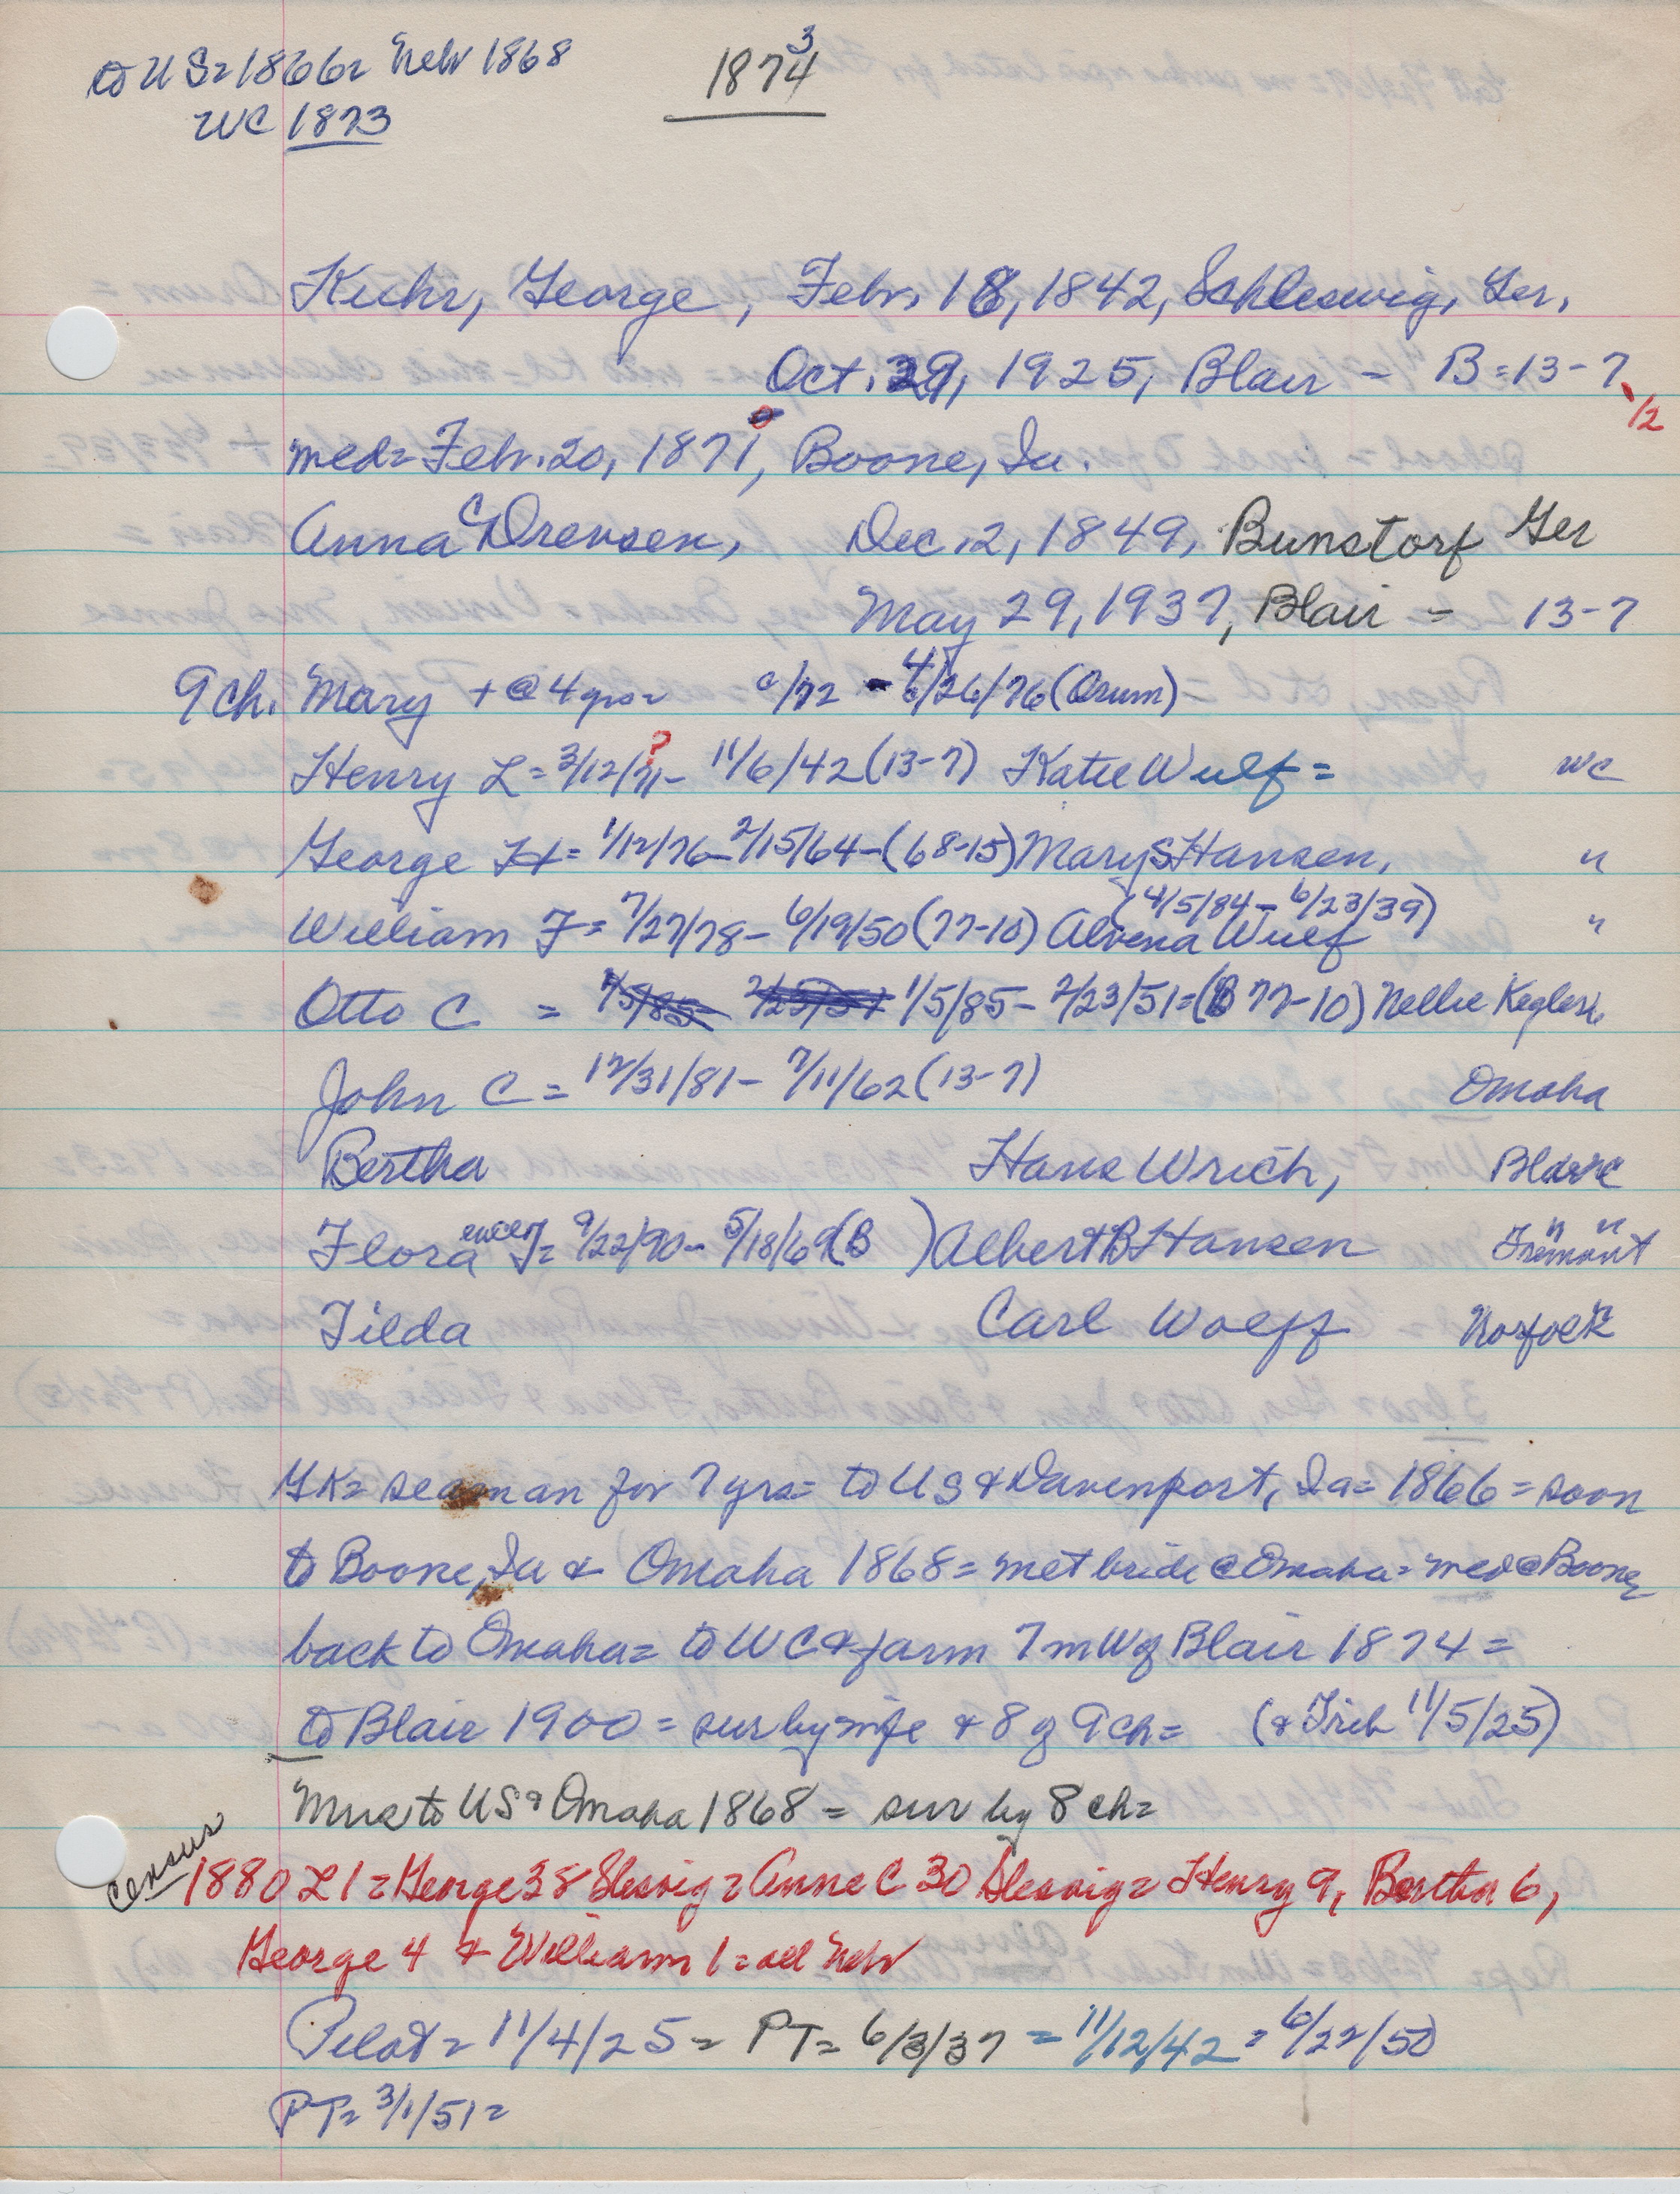 to US = 1866 = Nebr 1868
WC 1873
1874 3
Kuhr, George, Febr. 18, 1842, Schleswig, Ger.
Oct. 29, 1925, Blair - B = 13-7
1/2
med = Febr. 20, 1871, Boone, Ia.
0
Anna C Drevsen, Dec. 2, 1849, Bunstorf Ger
May 29, 1937, Blair - 13-7
9 ch. Mary + @ 4 yrs = c/72 - 4/26/76 (Orum) =
Henry L = 3/12/71 - 11/6/42 (13-7) Katie Wulf = WC
?
George H = 1/12/76 - 2/15/64 - (68-15) Mary S Hansen, "
(4/5/84 - 6/23/39)
William F = 7/27/78 - 6/19/50 (77-10) Alvena Wulf "
Otto C = 1/5/85 - 2/23/51 1/5/85 - 2/23/51 = (B 77-10) Nellie Kegler =
John C = 12/31/81 - 7/11/62 (13-7) Omaha
Bertha Hans Wrich, Blair
Flora J = 9/22/90 - 5/18/69 (B ) Albert B Hansen Fremont
" "
Tilda Carl Wolff Norfolk
GK = seaman for 7 yrs = to US & Davenport, Ia = 1866 = soon
to Boone, Ia & Omaha 1868 = met bride @ Omaha = med @ Boone,
back to Omaha = to WC & farm 7 m W of Blair 1874 =
to Blair 1900 = sur by wife & 8 of 9 ch = (& Trib 11/5/25)
Mrs to US & Omaha 1868 = sur by 8 ch =
census
1880 L1 = George 38 Slesvig = Anne C 30 Slesvig = Henry 9, Bertha 6,
George 4 & William 1 = all Nebr
Pilot = 11/4/25 = PT = 6/3/37 = 11/12/42 = 6/22/50
PT = 3/1/51 =